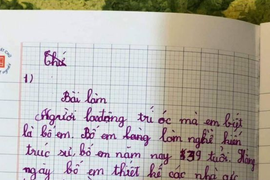 Thứ
1)
Bài làm
Người lao động trí óc mà em biết
là bố em. Bố em làm nghề kiến
trúc sư, bố em năm nay 39 tuổi. Hằng
ngày bố em thiết kế các